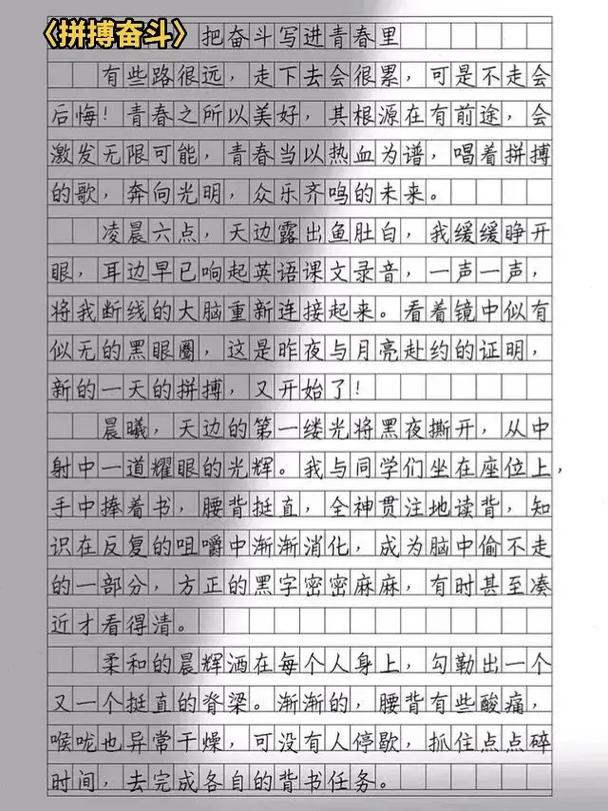 《拼搏奋斗》 把奋斗写进青春里
有些路很远，走下去会很累，可是不走会
后悔！青春之所以美好，其根源在有前途，会
激发无限可能，青春当以热血为谱，唱着拼搏
的歌，奔向光明，众乐齐鸣的未来。
凌晨六点，天边露出鱼肚白，我缓缓睁开
眼，耳边早已响起英语课文录音，一声一声，
将我断线的大脑重新连接起来。看着镜中似有
似无的黑眼圈，这是昨夜与月亮赴约的证明，
新的一天的拼搏，又开始了！
晨曦，天边的第一缕光将黑夜撕开，从中
射中一道耀眼的光辉。我与同学们坐在座位上，
手中捧着书，腰背挺直，全神贯注地读背，知
识在反复的咀嚼中渐渐消化，成为脑中偷不走
的一部分，方正的黑字密密麻麻，有时甚至凑
近才看得清。
柔和的晨辉洒在每个人身上，勾勒出一个
又一个挺直的脊梁。渐渐的，腰背有些酸痛，
喉咙也异常干燥，可没有人停歇，抓住点点碎
时间，去完成各自的背书任务。